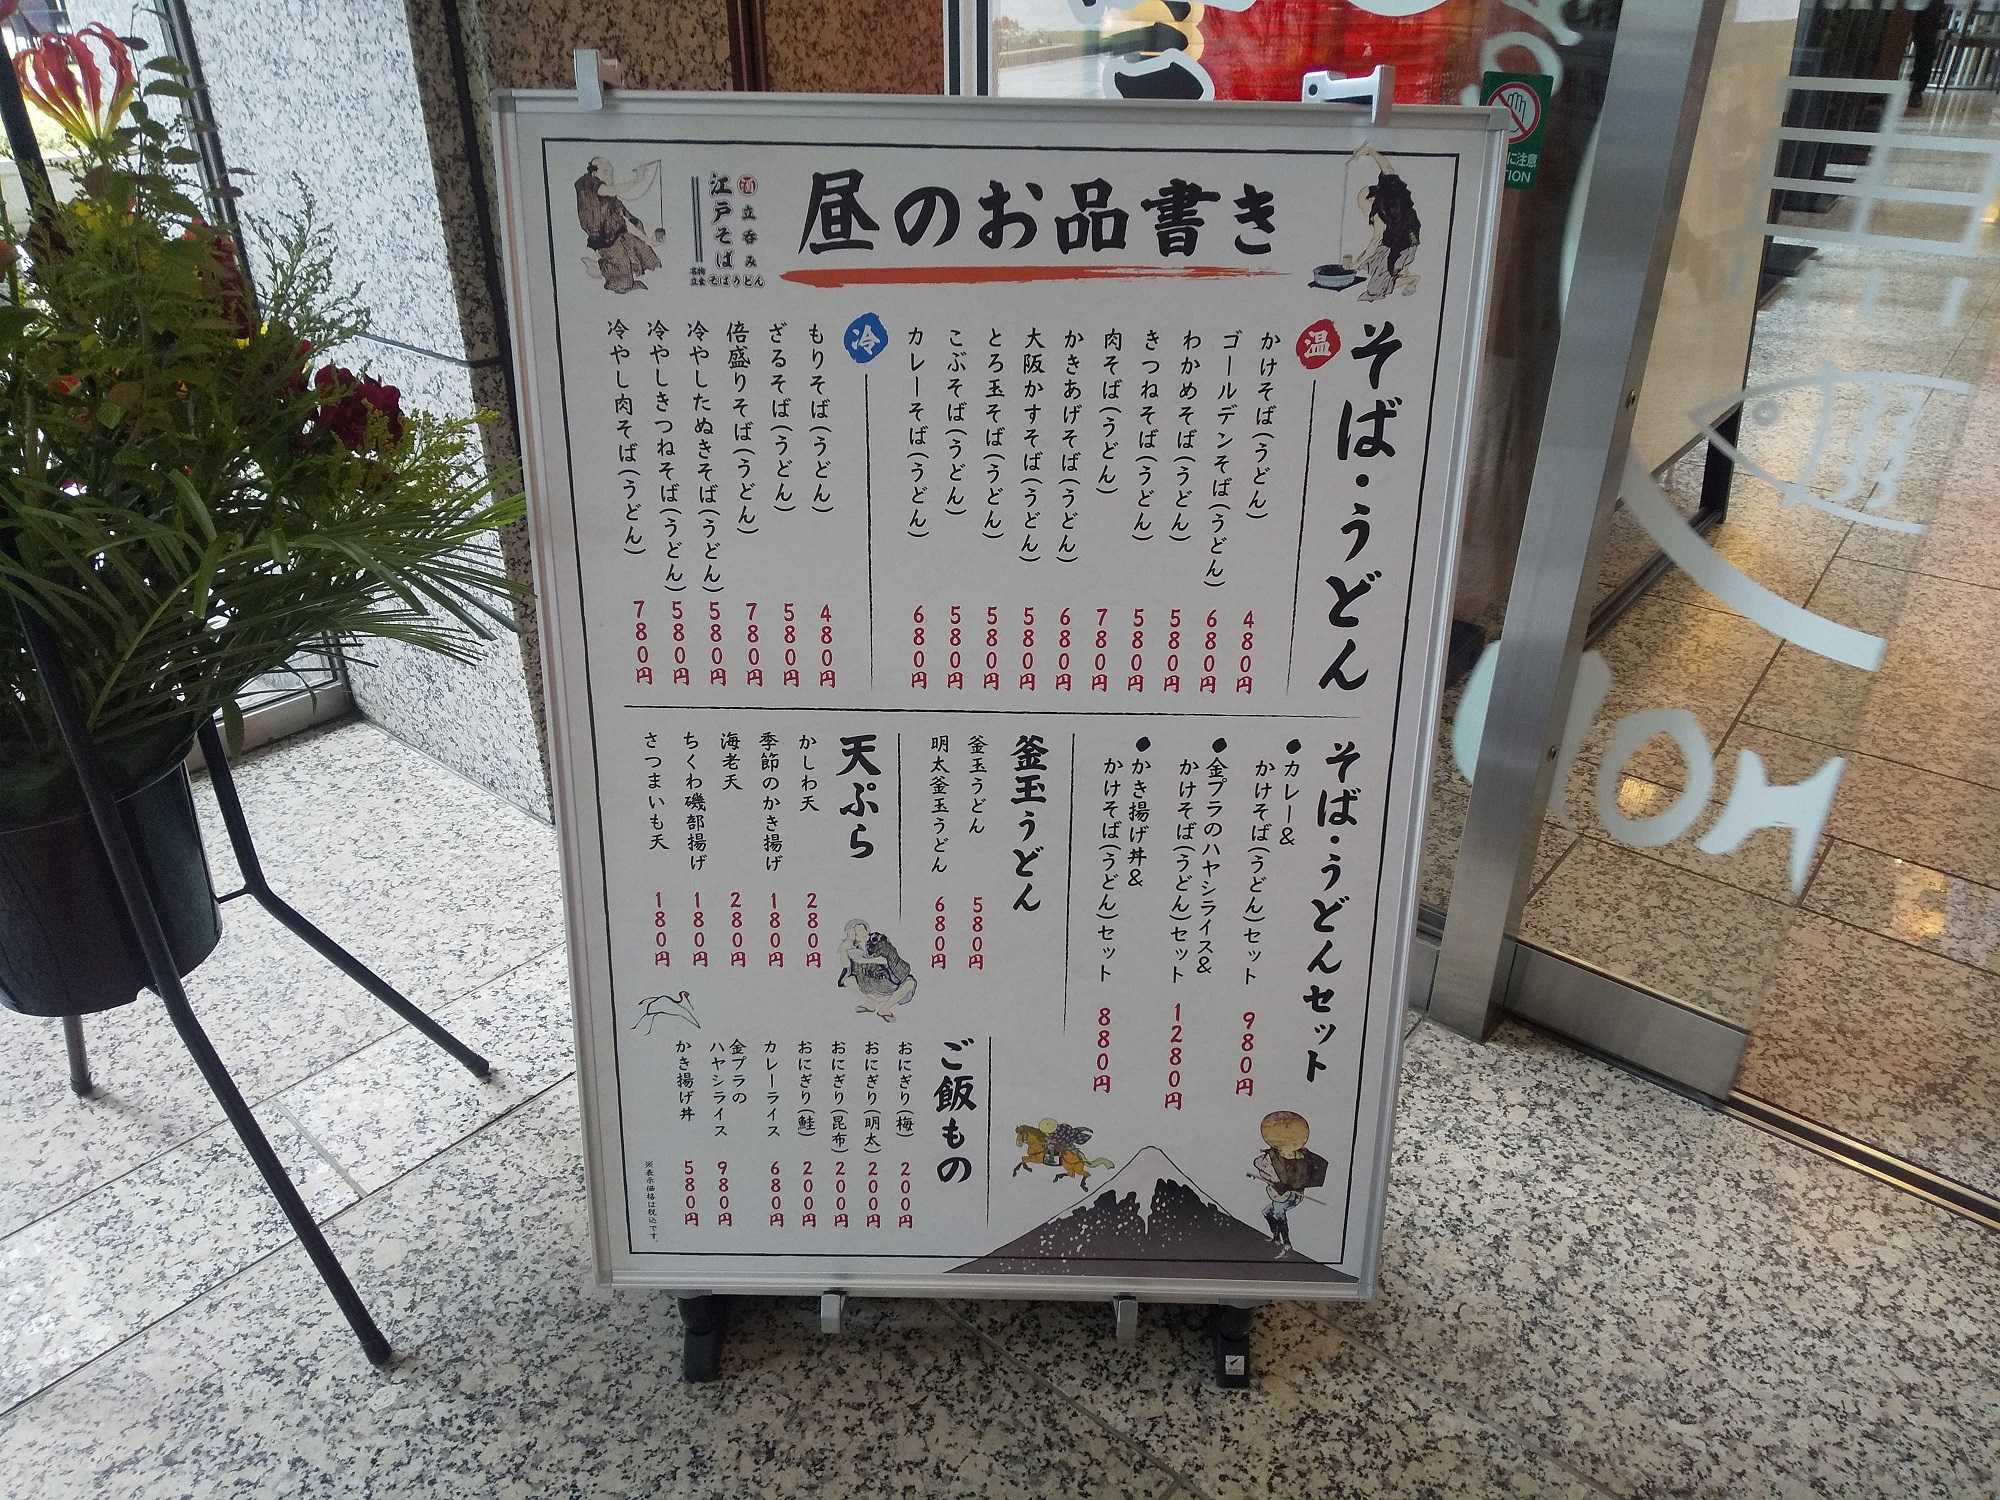 昼のお品書き
立呑み
江戸そば
名物
立食
そばうどん
そば・うどん
温
かけそば(うどん) 480円
ゴールデンそば(うどん) 680円
わかめそば(うどん) 580円
きつねそば(うどん) 580円
肉そば(うどん) 780円
かきあげそば(うどん) 680円
大阪かすそば(うどん) 580円
とろ玉そば(うどん) 580円
こぶそば(うどん) 580円
カレーそば(うどん) 680円
冷
もりそば(うどん) 480円
ざるそば(うどん) 580円
倍盛りそば(うどん) 780円
冷やしたぬきそば(うどん) 580円
冷やしきつねそば(うどん) 580円
冷やし肉そば(うどん) 780円
そば・うどんセット
●カレー&
かけそば(うどん)セット 980円
●金プラのハヤシライス&
かけそば(うどん)セット 1280円
●かき揚げ丼&
かけそば(うどん)セット 880円
釜玉うどん
釜玉うどん 580円
明太釜玉うどん 680円
天ぷら
かしわ天 280円
季節のかき揚げ 180円
海老天 280円
ちくわ磯部揚げ 180円
さつまいも天 180円
ご飯もの
おにぎり(梅) 200円
おにぎり(明太) 200円
おにぎり(昆布) 200円
おにぎり(鮭) 200円
カレーライス 680円
金プラの
ハヤシライス 980円
かき揚げ丼 580円
※表示価格は税込です。
に注意
TION